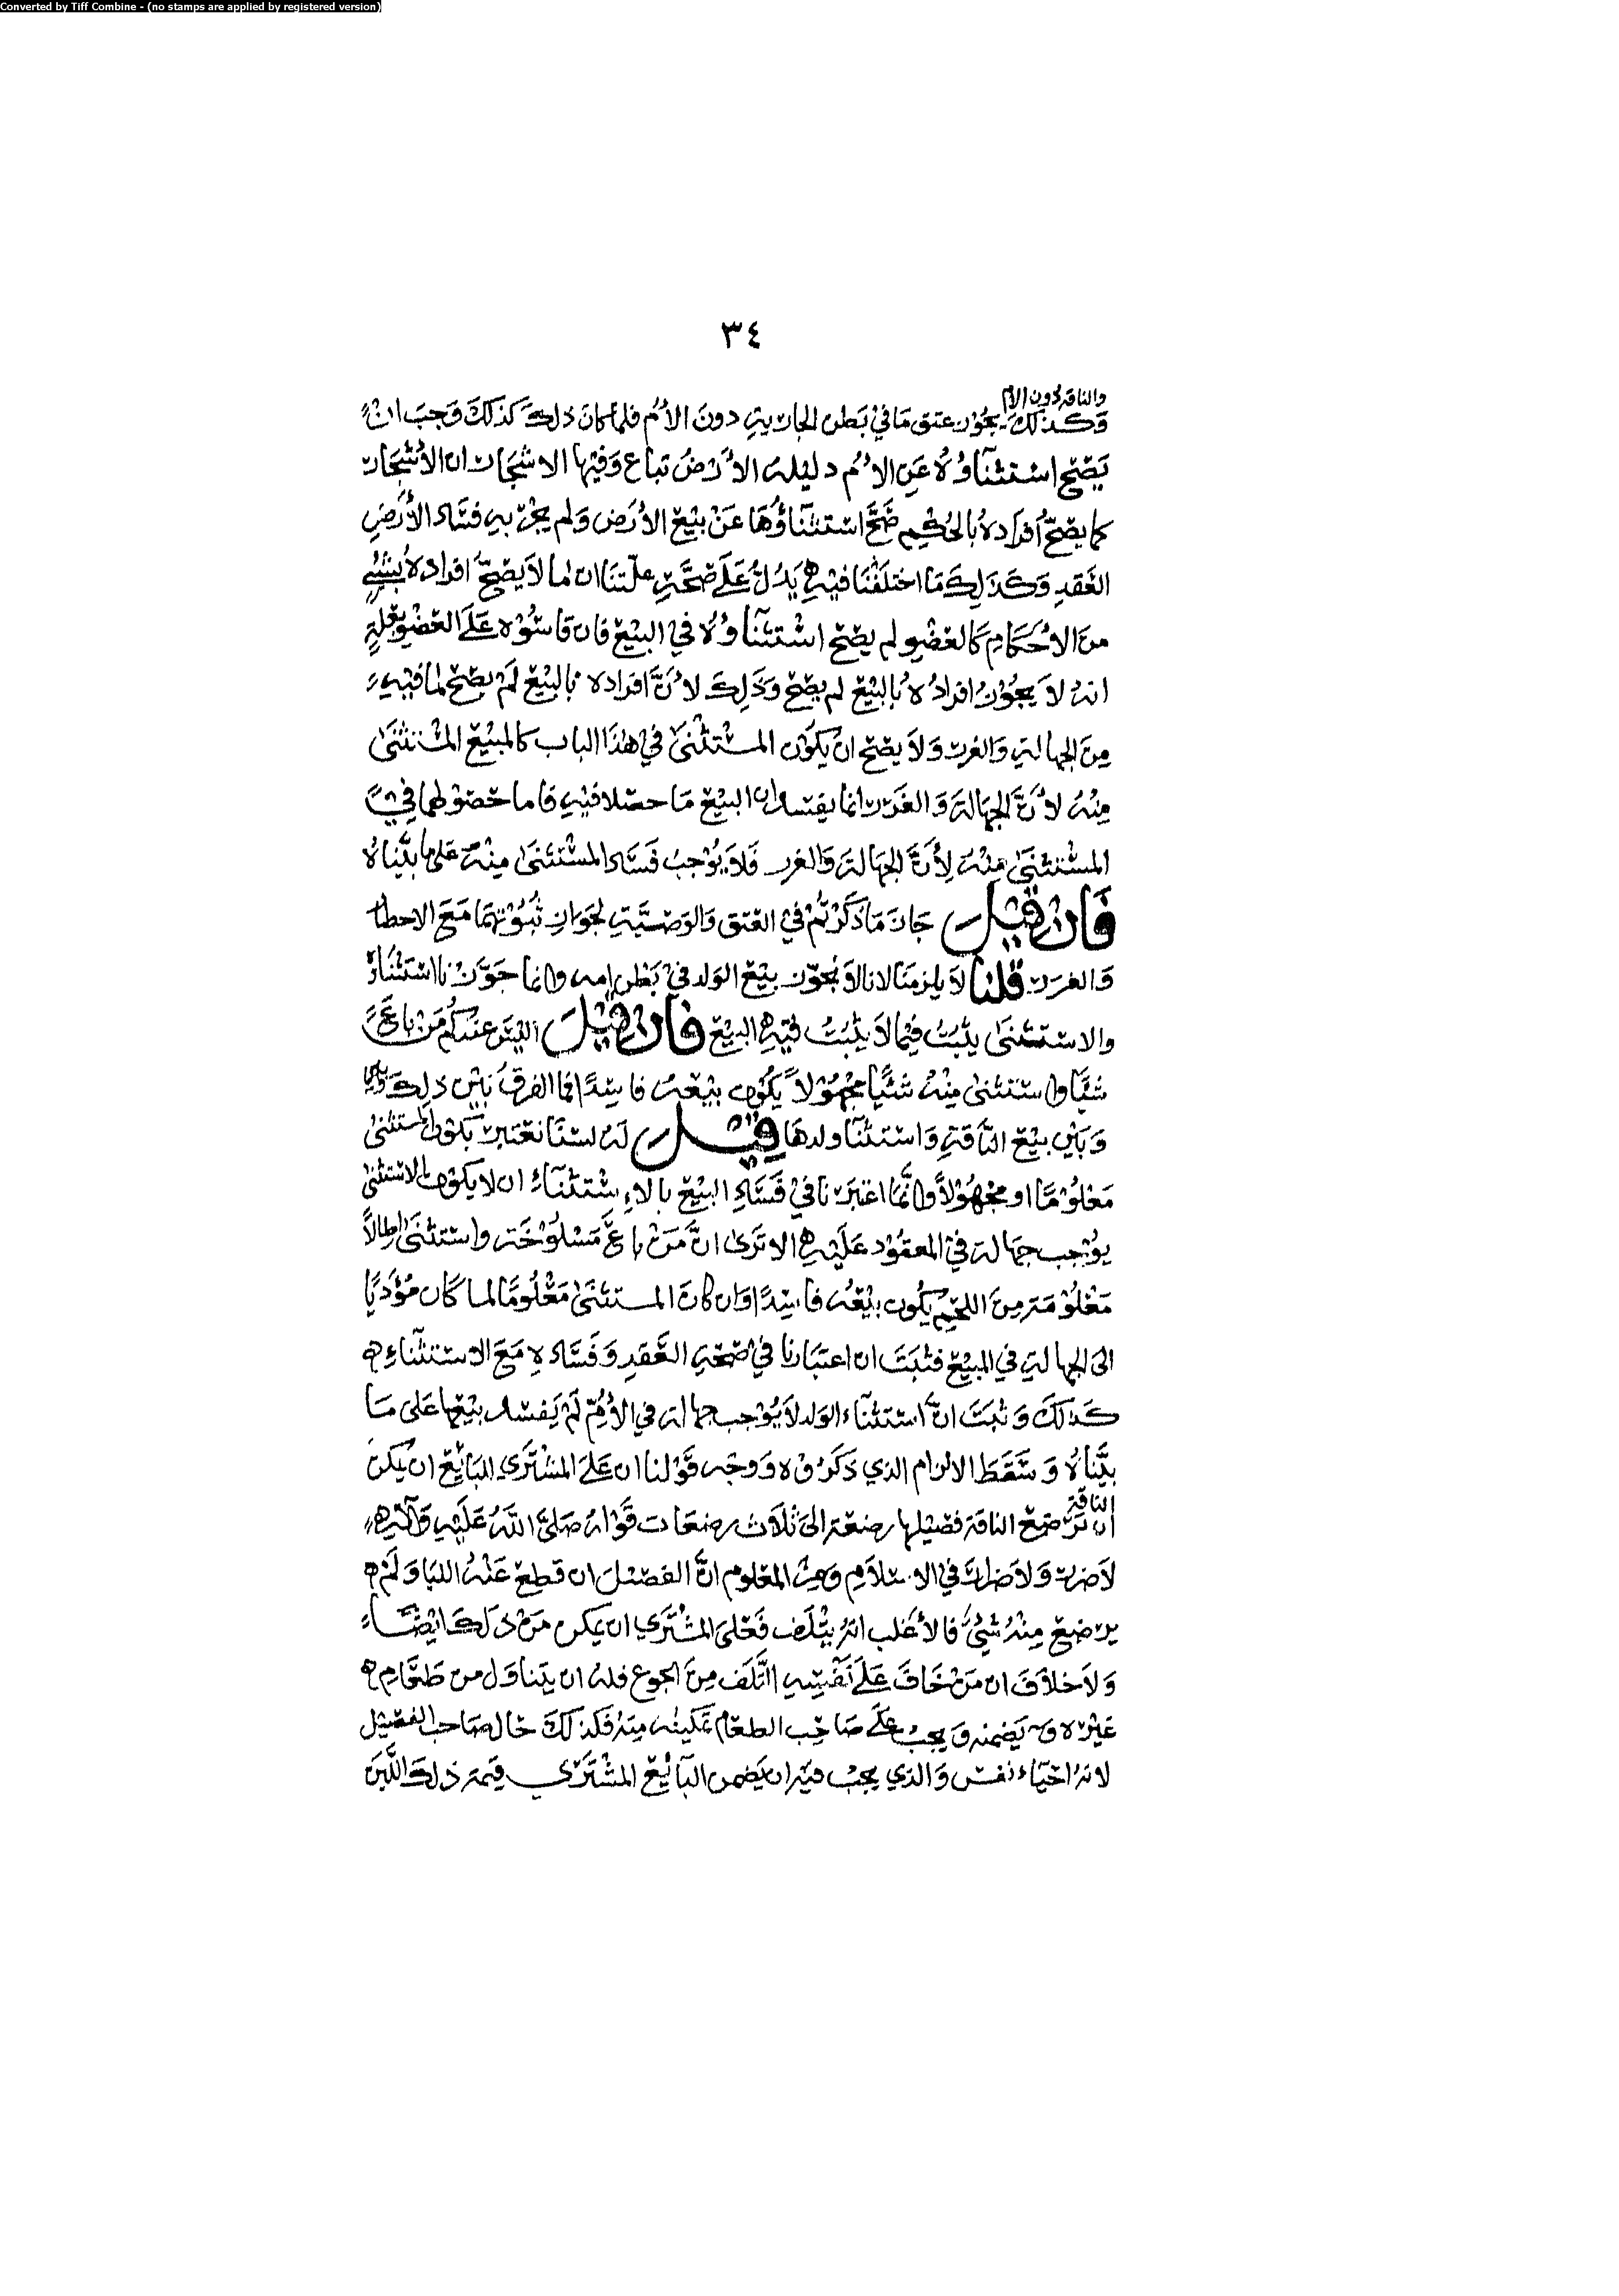 Converted by Tiff Combine - (no stamps are applied by registered version)
٣٤
والناقة دون الأم
وكذلك يجوز عتق مَا في بَطن الجارية دونَ الأُم فلما كانَ ذلك كذلكَ وَجبَ ان
يَصّح استثنآؤُهُ عَن الاُم دليله الأرضُ تباع وَفيها الاشجَار ان الأشجَار
كما يصّحّ أفرادهُ بالحُكْم صَحَّ استثنآؤُهَا عَنْ بيْع الأرَض وَلم يجز به فسَاد الأرَض
العَقدِ وَكَذلِكَ مَا اختلفْنَا فيْه يَدُلّ عَلَى صحَّةِ علّتنَا ان ما لاَ يصّحّ افرادهُ بشْيءٍ
منَ الاُحكَام كَالعضْو لم يصّح اسْتثنآؤُهُ في البيْع فان قاسُوْه عَلَى العضْو بعلة
انهُ لاَ يجُوْز افرادُهُ بالبيْع لم يصّح وَذَلِكَ لأنَّ افراده بالبيْع لمْ يصّح لما فيْهِ
مِنَ الجهالة وَالغرر وَلاَ يصّح انْ يكوْن المستثنىَ في هٰذا الباب كالمبيْع المستثنَىٰ
مِنْهُ لأنَّ الجهَالةَ وَالغَرَر انما يفسدان البيْع مَا حصَلا فيْه فاما حصوْلهما في
المسْتثنَىٰ مِنْهُ لِأنَّ الجهَالةَ وَالغرر فَلاَ يُوْجبُ فسَاد المسْتثنَىٰ مِنْهُ عَلى ما بيَّناهُ
فَان قيْل جَازَ مَا ذكَرْتمْ في العتق وَالوَصيَّة لجوَاز ثُبُوْتهمَا مَعَ الاخطار
وَالغرَر قُلنا لاَ يلزمنَا لانا لاَ نجوّز بيْع الوَلد فيْ بَطن امه وانما جوَّزْنا استثنَاءَهُ
والاستثنَىٰ يثبتُ فيْما لاَ يثبتُ فيْه البيْع فَان قيْل اليْسَ عندكُم مَنْ باعَ
شيْئًا واستثنىٰ مِنْهُ شيْئًا مجْهُوْلاً يكوْن بيْعهُ فاسِدًا فما الفرقُ بيْن ذلِكَ
وَبيْن بيْع النّاقةِ وَاستثنآ ولدهَا قيْل لَهُ لسْنَا نعْتبر بكوْن المستثنىٰ
مَعْلُوْمًا او مجْهُوْلاً وانَّما اعْتبَرنا فيْ فسَادِ البيْع بالاِستثنآءِ ان لا يكوْن الاستثنىٰ
يوْجب جهَالة في المعقوْد عَليْه الا ترَىٰ انَّ مَنْ باعَ مَسْلوْخة واستثنىٰ ارطالاً
مَعْلُوْمَة مِنَ اللحْم يكُون بيْعُه فاسِدًا وَان كانَ المستثنَىٰ مَعْلُومًا لما كَان مُؤَديًا
الىَ الجهالة في المبيْع فثبَتَ ان اعتبارنا في صحّةِ العَقدِ وَفَسَادهِ مَعَ الاستثنآءِ
كذلكَ وَثبتَ انَّ استثنآء الوَلد لاَ يُوْجب جهالة في الأُمّ لَمْ يَفسد بيْعهَا عَلى مَا
بيَّناهُ وَسَقَطَ الالزام الذي ذكَرُوْه وَوجْه قوْلنا ان عَلىَ المشْترَي للبَائِع ان يمكن
الناقة
ان ترْضِع الناقة فصيْلهَا رضعَة الىَ ثلاَث رضعَات قَوْلهُ صَلىَّ اللَّهُ عَليْهِ وَآلهِ
لاَ ضرر وَلاَ ضرارَ في الاسْلاَم وَمنَ المعْلوم انَّ الفصيْلَ ان قطعَ عَنْهُ اللبَا وَلَمْ
يرْضعْ مِنْهُ شيْئً فالأغلب انهُ يتْلف فَعلىَ المشْترَي ان يمكن منْ ذلكَ ايْضًا
وَلاَ خلاَفَ ان مَنْ خَافَ عَلىَ نفْسِهِ التَّلفَ مِنَ الجوع فلهُ ان يتناوَل من طَعَام
غيْره وَيَضمنه وَيجبُ علىَ صَاحِب الطعَام تمكينه مِنهُ فكذلكَ حَال صَاحب الفصيْل
لانهُ احيَاء نفس وَالذي يجبْ فيْه ان يَضمن البآئِع المشْترَي قيمة ذلكَ اللَّبَن